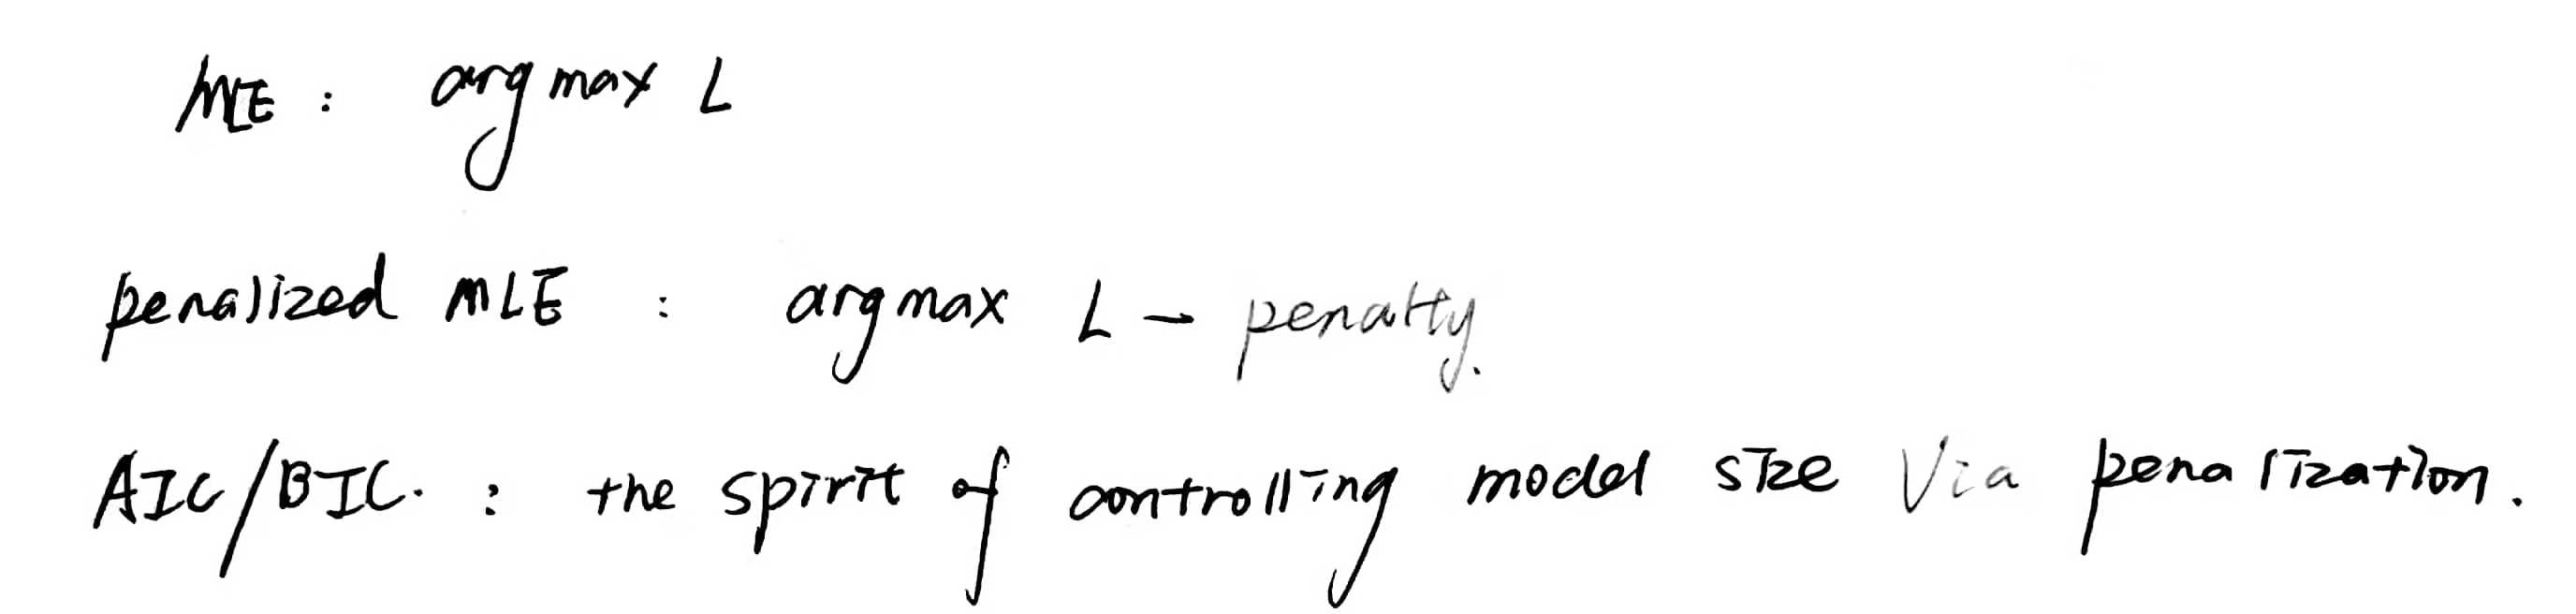 MLE : argmax L
penalized MLE : argmax L - penalty.
AIC/BIC. : the spirit of controlling model size Via penalization.